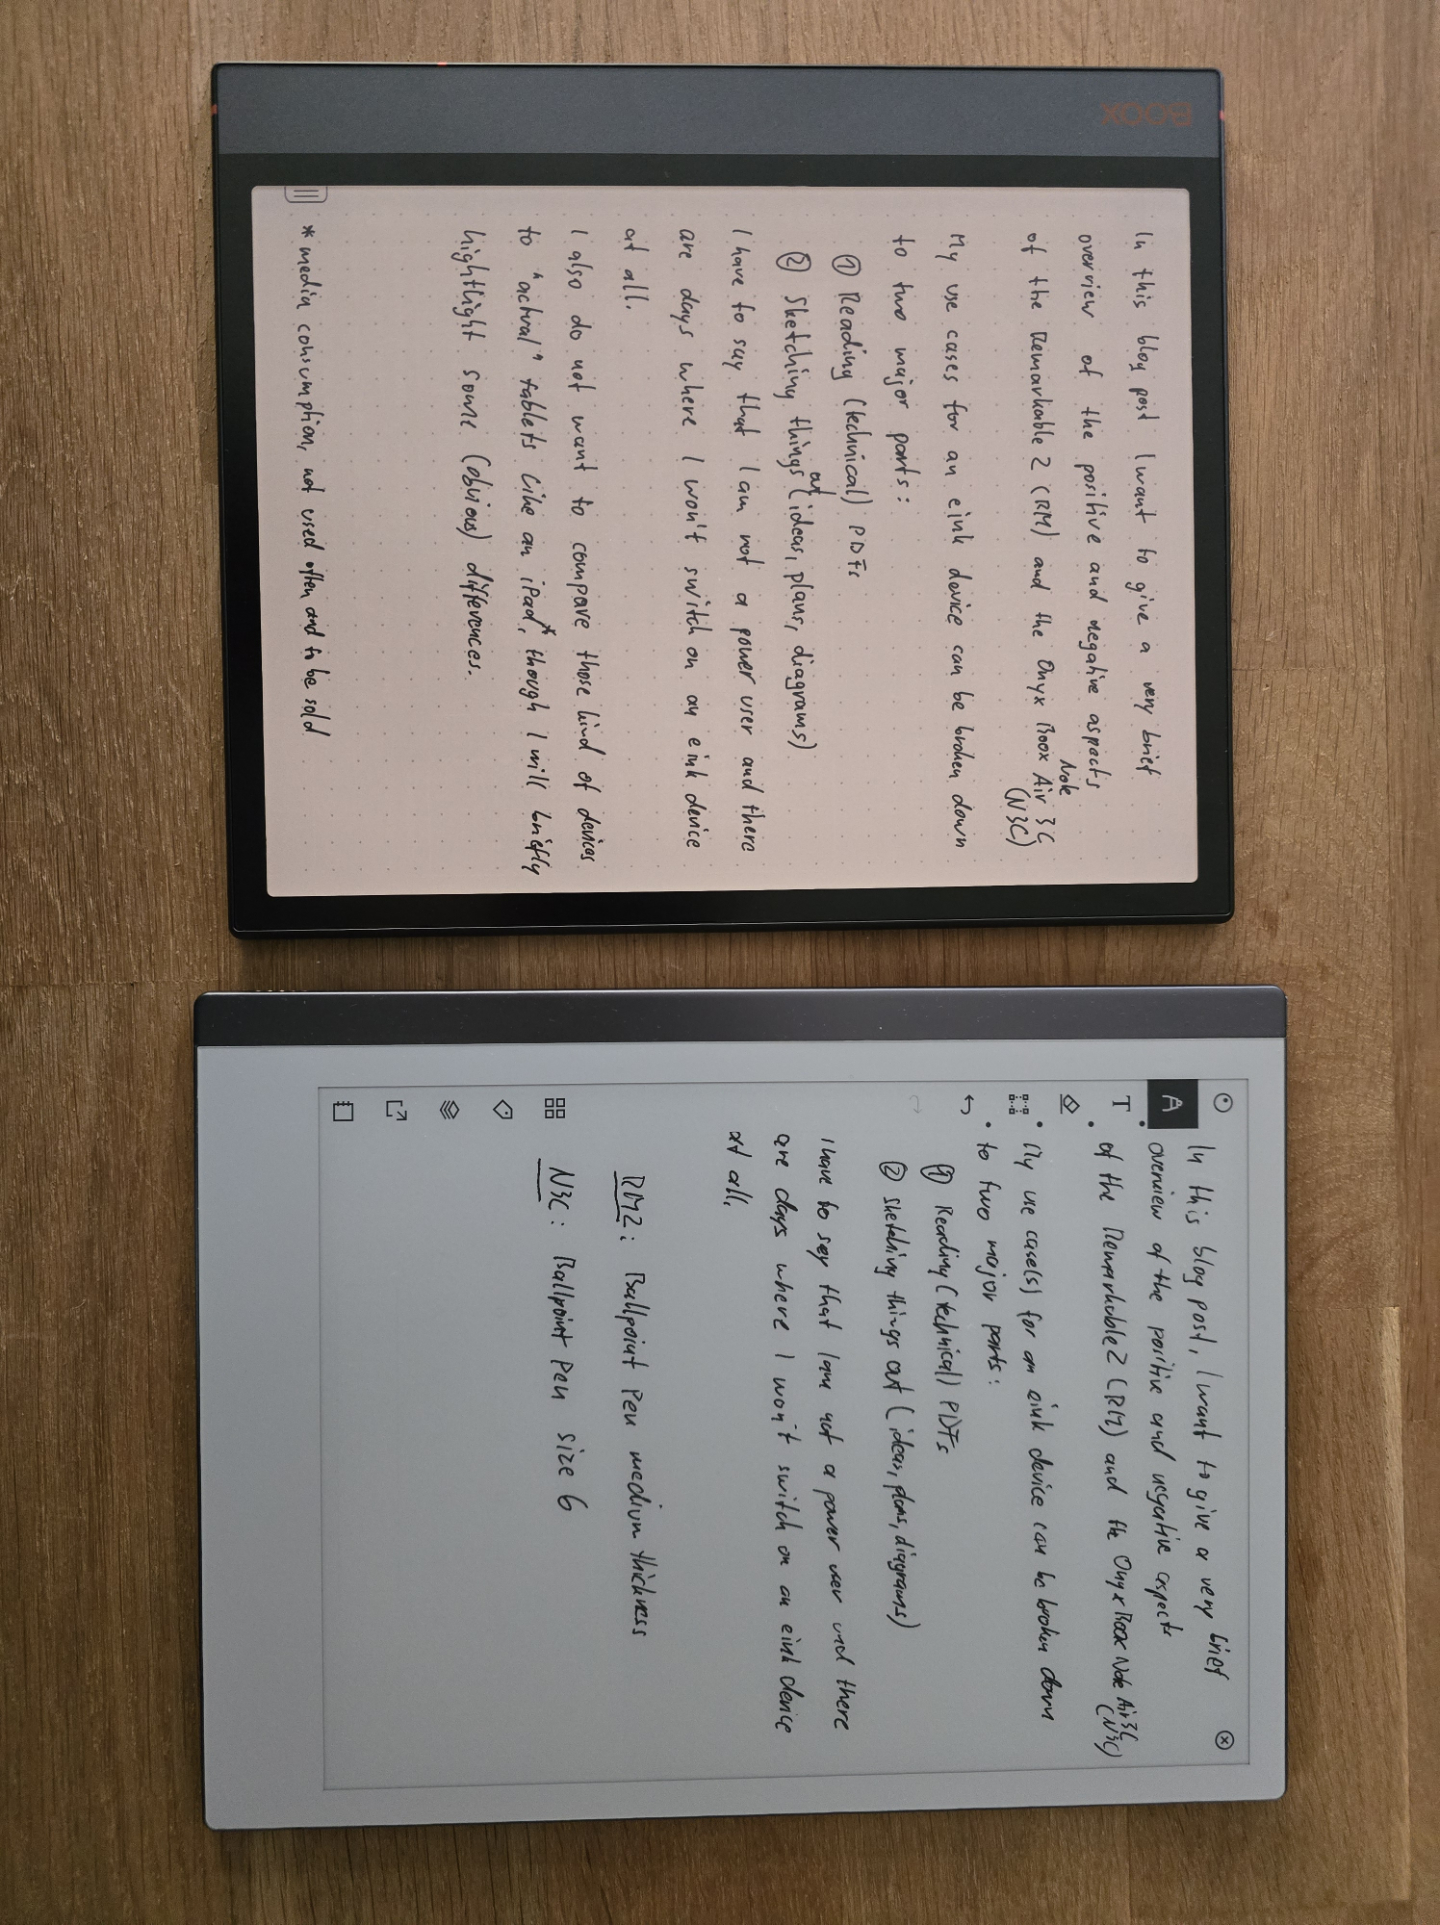 BOOX
In this blog post I want to give a very brief
overview of the positive and negative aspects
of the Remarkable 2 (RM) and the Onyx Boox Note Air 3C
(N3C)
My use cases for an eink device can be broken down
to two major parts:
① Reading (technical) PDFs
② Sketching things out (ideas, plans, diagrams)
I have to say that I am not a power user and there
are days where I won't switch on an eink device
at all.
I also do not want to compare those kind of devices
to "actual" tablets like an iPad*, though I will briefly
highthlight some (obvious) differences.
* media consumption, not used often and to be sold
A
T
In this blog post, I want to give a very brief
overview of the positive and negative aspects
of the Remarkable 2 (RM) and the Onyx Boox Note Air 3C
(N3C)
My use case(s) for an eink device can be broken down
to two major parts:
① Reading (technical) PDFs
② Sketching things out (ideas, plans, diagrams)
I have to say that I am not a power user and there
are days where I won't switch on an eink device
at all.
RM2: Ballpoint Pen medium thickness
N3C: Ballpoint Pen size 6